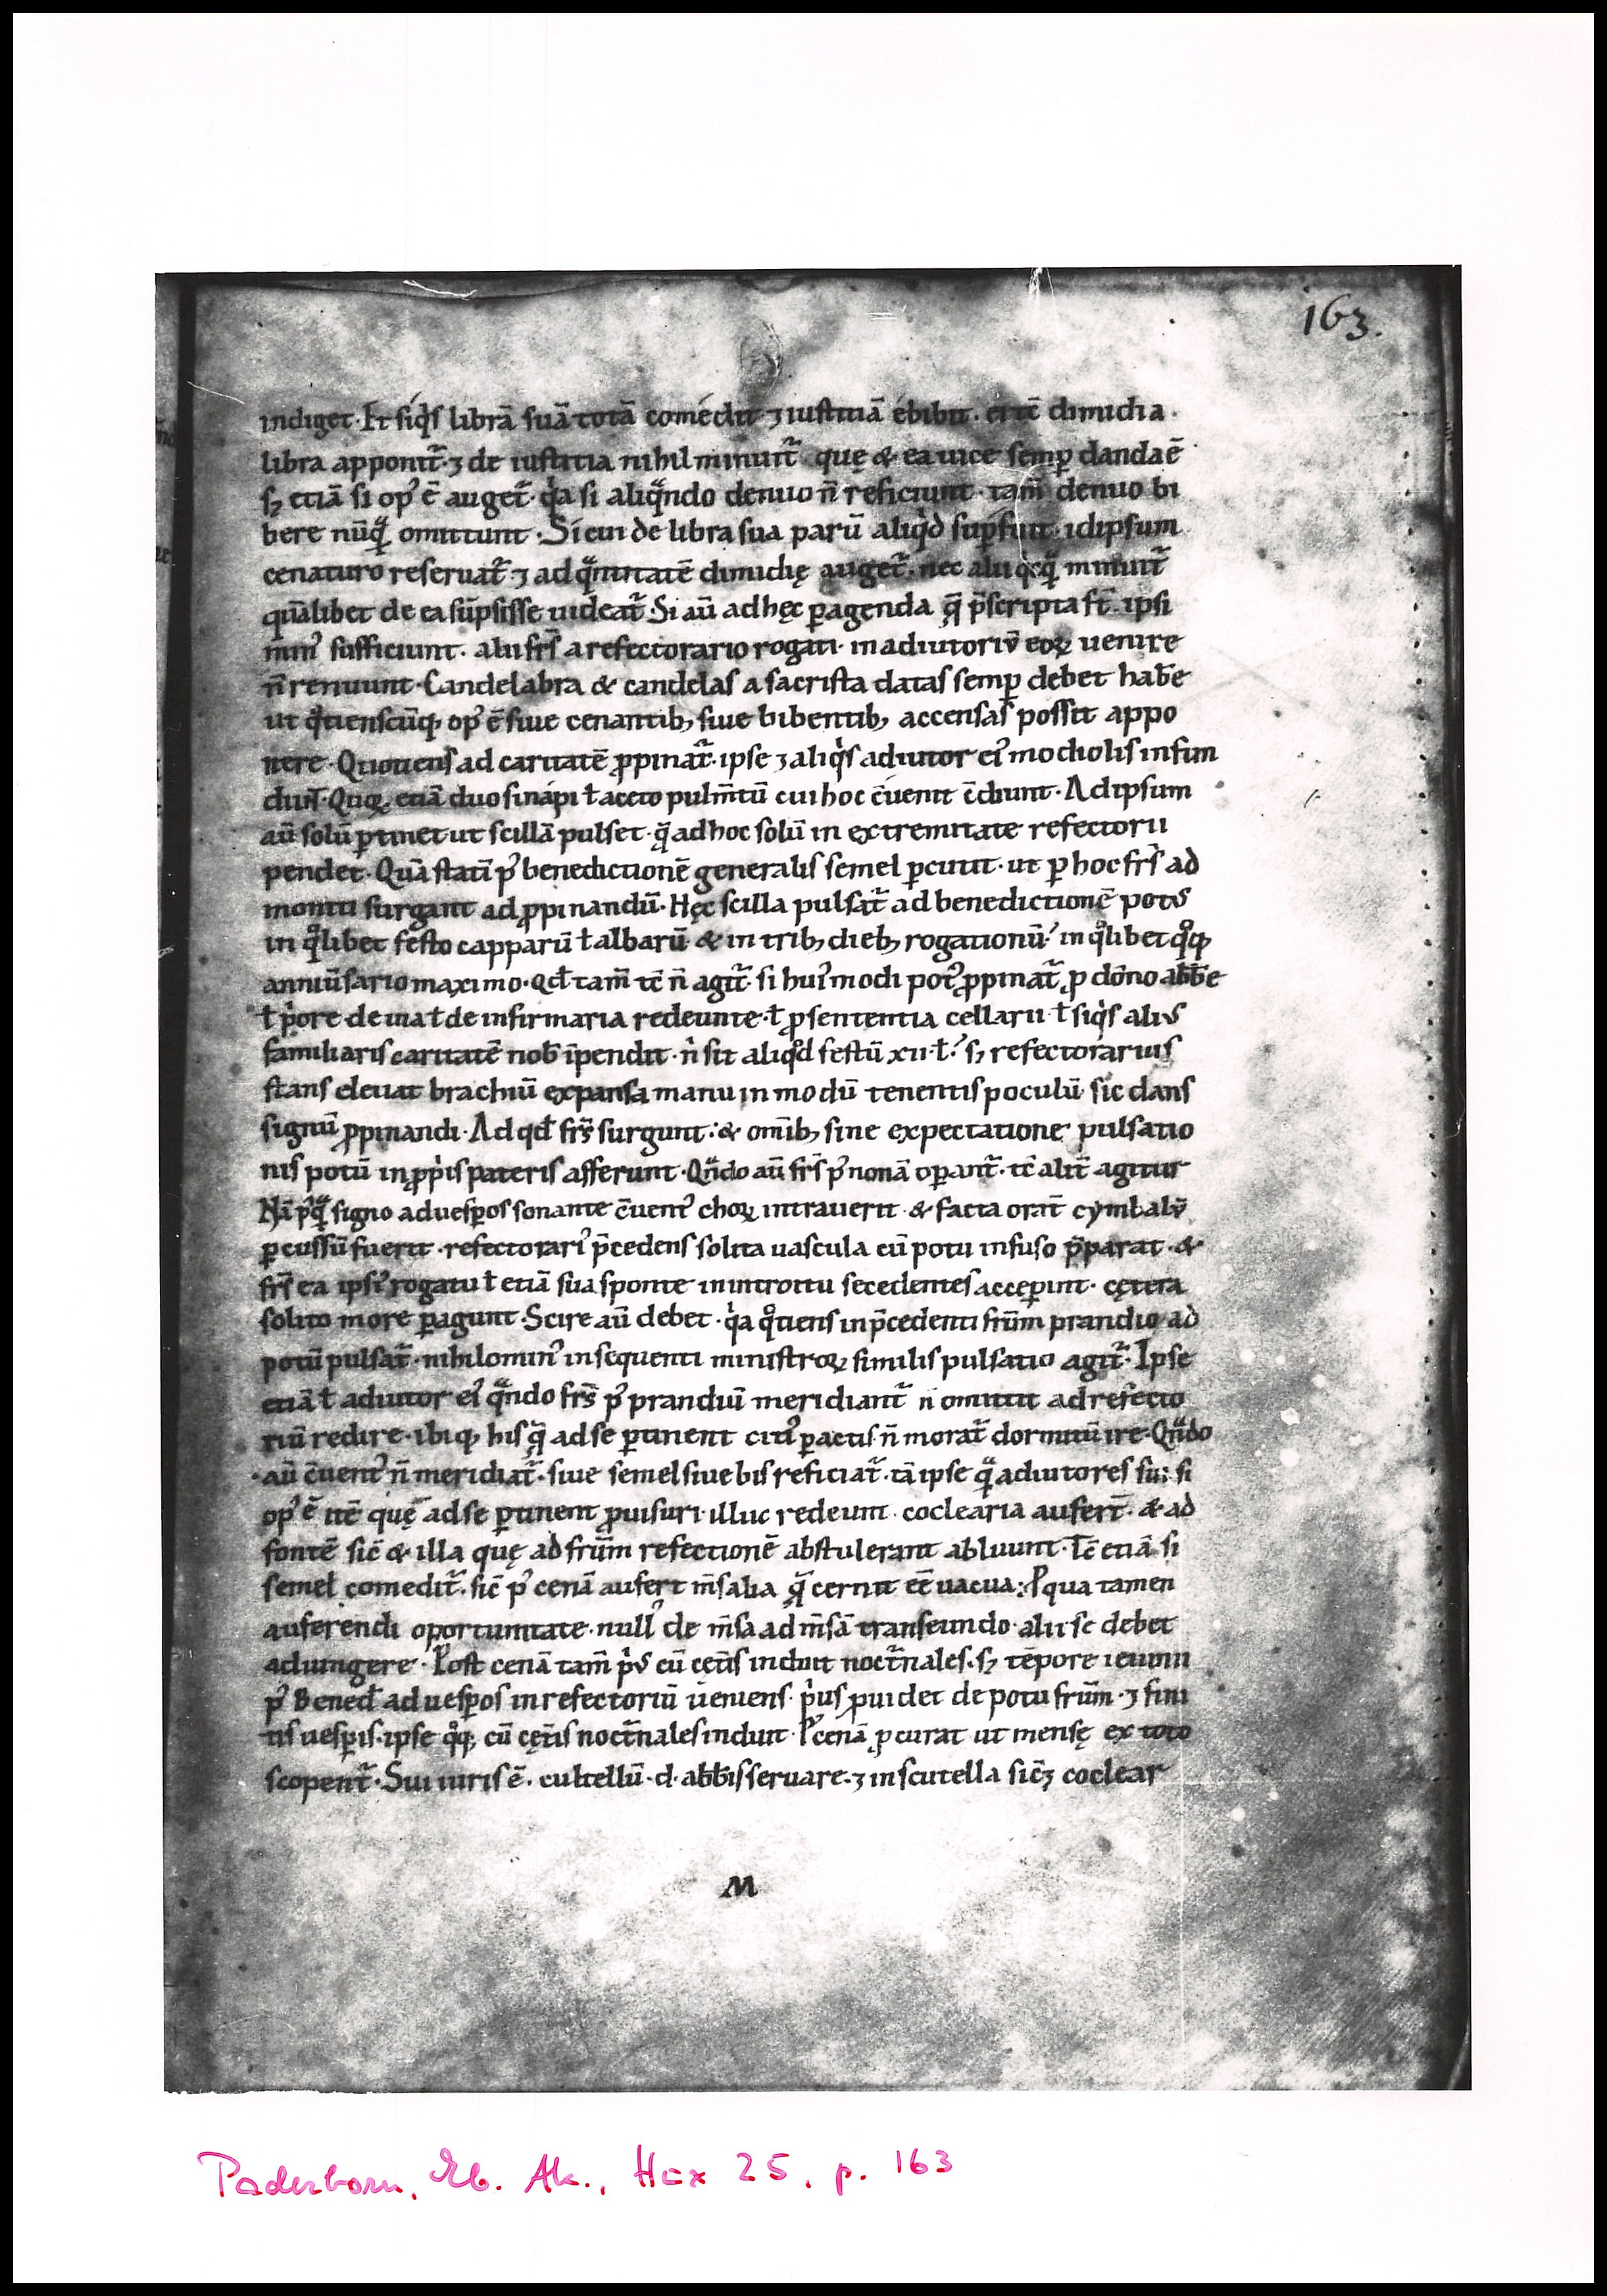 163.
indiget. Et siqͥs librā suā totā comedit ⁊ iustitiā ebibit. ei tc̄ dimidia.
libra apponit᷑. ⁊ de iustitia nihil minuit᷑ que᷒ & ea uice semꝑ danda ē
sꝫ etiā si opꝰ ē auget᷑. qͥa si aliqᷓndo denuo n̄ reficiunt. tam̄ denuo bi
bere nūqᷓ omittunt. Si cui de libra sua parū aliqͥd suꝑfuit. idipsum
cenaturo reseruat᷑ ⁊ ad qᷓntitatē dimidię auget᷑. nec alii qͥcqᷓ minuit᷑
quālibet de ea sūpsisse uideat᷑. Si aū ad hęc ꝑagenda q̄ p̄scripta st̄. ipsi
minꝰ sufficiunt. alii frs̄ a refectorario rogati. in adiutoriū eoꝝ uenire
n̄ renuunt. Candelabra & candelas a sacrista datas semꝑ debet habe͞
ut qͦtienscūqꝫ opꝰ ē siue cenantibꝫ siue bibentibꝫ accensas possit appo
nere. Quotiens ad caritatē ꝓpinat᷑. ipse ⁊ aliqͥs adiutor eiꝰ mocholis infun
dūt. Quoꝝ etiā duo sinapi ł aceto pulm̄tū cui hoc c̄uenit c̄diunt. Ad ipsum
aū solū ꝑtinet ut scillā pulset. q̄ ad hoc solū in extremitate refectorii
pendet. Quā statī pꝰ benedictionē generalis semel ꝑcutit. ut ꝑ hoc frs̄ ad
moniti surgant ad ꝓpinandū. Hęc scilla pulsat᷑ ad benedictionē potꝰ
in qͦlibet festo capparū ł albarū. & in tribꝫ diebꝫ rogationū. in qͦlibet qͦqꝫ
anniūsario maximo. qd̄ tam̄ tc̄ n̄ agit᷑. si huiꝰmodi potꝰ ꝓpinat᷑ ꝓ dōno abb̄e
ł p̄ore de uia ł de infirmaria redeunte. ł ꝓ sententia cellarii ł siqͥs aliꝰ
familiaris caritatē nob̄ īpendit. n̄ sit aliqͦd festū xii. ł. sꝫ refectorarius
stans eleuat brachiū expansa manu in modū tenentis poculū sic dans
signū ꝓpinandi. Ad qd̄ frs̄ surgunt. & om̄ibꝫ sine expectatione pulsatio
nis potū in ꝓpͥis pateris afferunt. Qᷓndo aū frs̄ pꝰ nonā oꝑant᷑. tc̄ alit̄ agitur
Nā pꝰqᷓ signo ad uesꝑos sonante c̄uentꝰ choꝝ intrauerit & facta orat̄ cymbalū
ꝑcussū fuerit. refectorariꝰ p̄cedens solita uascula cū potu infuso p̄parat. &
frs̄ ea ipsiꝰ rogatu ł etiā sua sponte in introitu secedentes acceꝑint. cętera
solito more ꝑagunt. Scire aū debet. qͥa qͦtiens in p̄cedenti frūm prandio ad
potū pulsat᷑. nihilominꝰ in sequenti ministroꝝ similis pulsatio agit᷑. Ipse
etiā ł adiutor eiꝰ qᷓndo frs̄ pꝰ prandiū meridiant᷑ n̄ omittit ad refecto
riū redire. ibiqꝫ his q̄ ad se ꝑtinent citiꝰ ꝑactis n̄ morat᷑ dormitū ire. Qᷓndo
aū c̄uentꝰ n̄ meridiat᷑. siue semel siue bis reficiat᷑. tā ipse qᷓ adiutores sui si
opꝰ ē itē quę ad se ꝑtinent ꝓuisuri. illuc redeunt. coclearia aufert̄. & ad
fontē sic̄ & illa quę ad frūm refectionē abstulerant abluunt. Tc̄ etiā si
semel comedit᷑. sic̄ pꝰ cenā aufert m̄salia q̄ cernit ēē uacua. P̱ qua tamen
auferendi oportunitate. nullꝰ de m̄sa ad m̄sā transeundo. alii se debet
adiungere. Post cenā tam̄ pͥꝰ cū cet̄is induit noct᷑nales. sꝫ tēpore ieiunii
pꝰ Bened̄ ad uesꝑos in refectoriū ueniens. pͥus ꝓuidet de potu frūm. ⁊ fini
tis uesꝑis. ipse qͦqꝫ cū cęt̄is noct᷑nales induit. Pꝰ cenā ꝓcurat ut mensę ex toto
scopent᷑. Sui iuris ē. cultellū. d. abb̄is seruare. ⁊ in scutella sic̄ꝫ coclear
M
Paderborn, Eb. Ak., Hux 25, p. 163